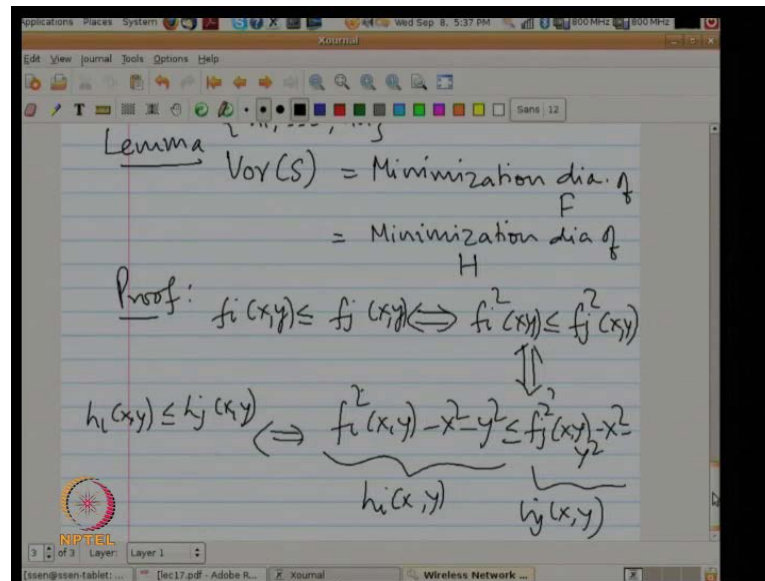 Applications Places System Wed Sep 8, 5:37 PM 800 MHz 800 MHz
Xournal
Edit View Journal Tools Options Help
Sans 12
Lemma
Vor(S) = Minimization dia. of F
= Minimization dia of H
Proof: fi (x,y) ≤ fj (x,y) ⟺ fi² (xy) ≤ fj² (x,y)
⇕
hi (x,y) ≤ hj (x,y) ⟺ fi² (x,y) - x² - y² ≤ fj² (x,y) - x² - y²
hi (x,y) hj (x,y)
NPTEL
3 of 3 Layer: Layer 1
[ssen@ssen-tablet: ... [lec17.pdf - Adobe R... Xournal Wireless Network ...